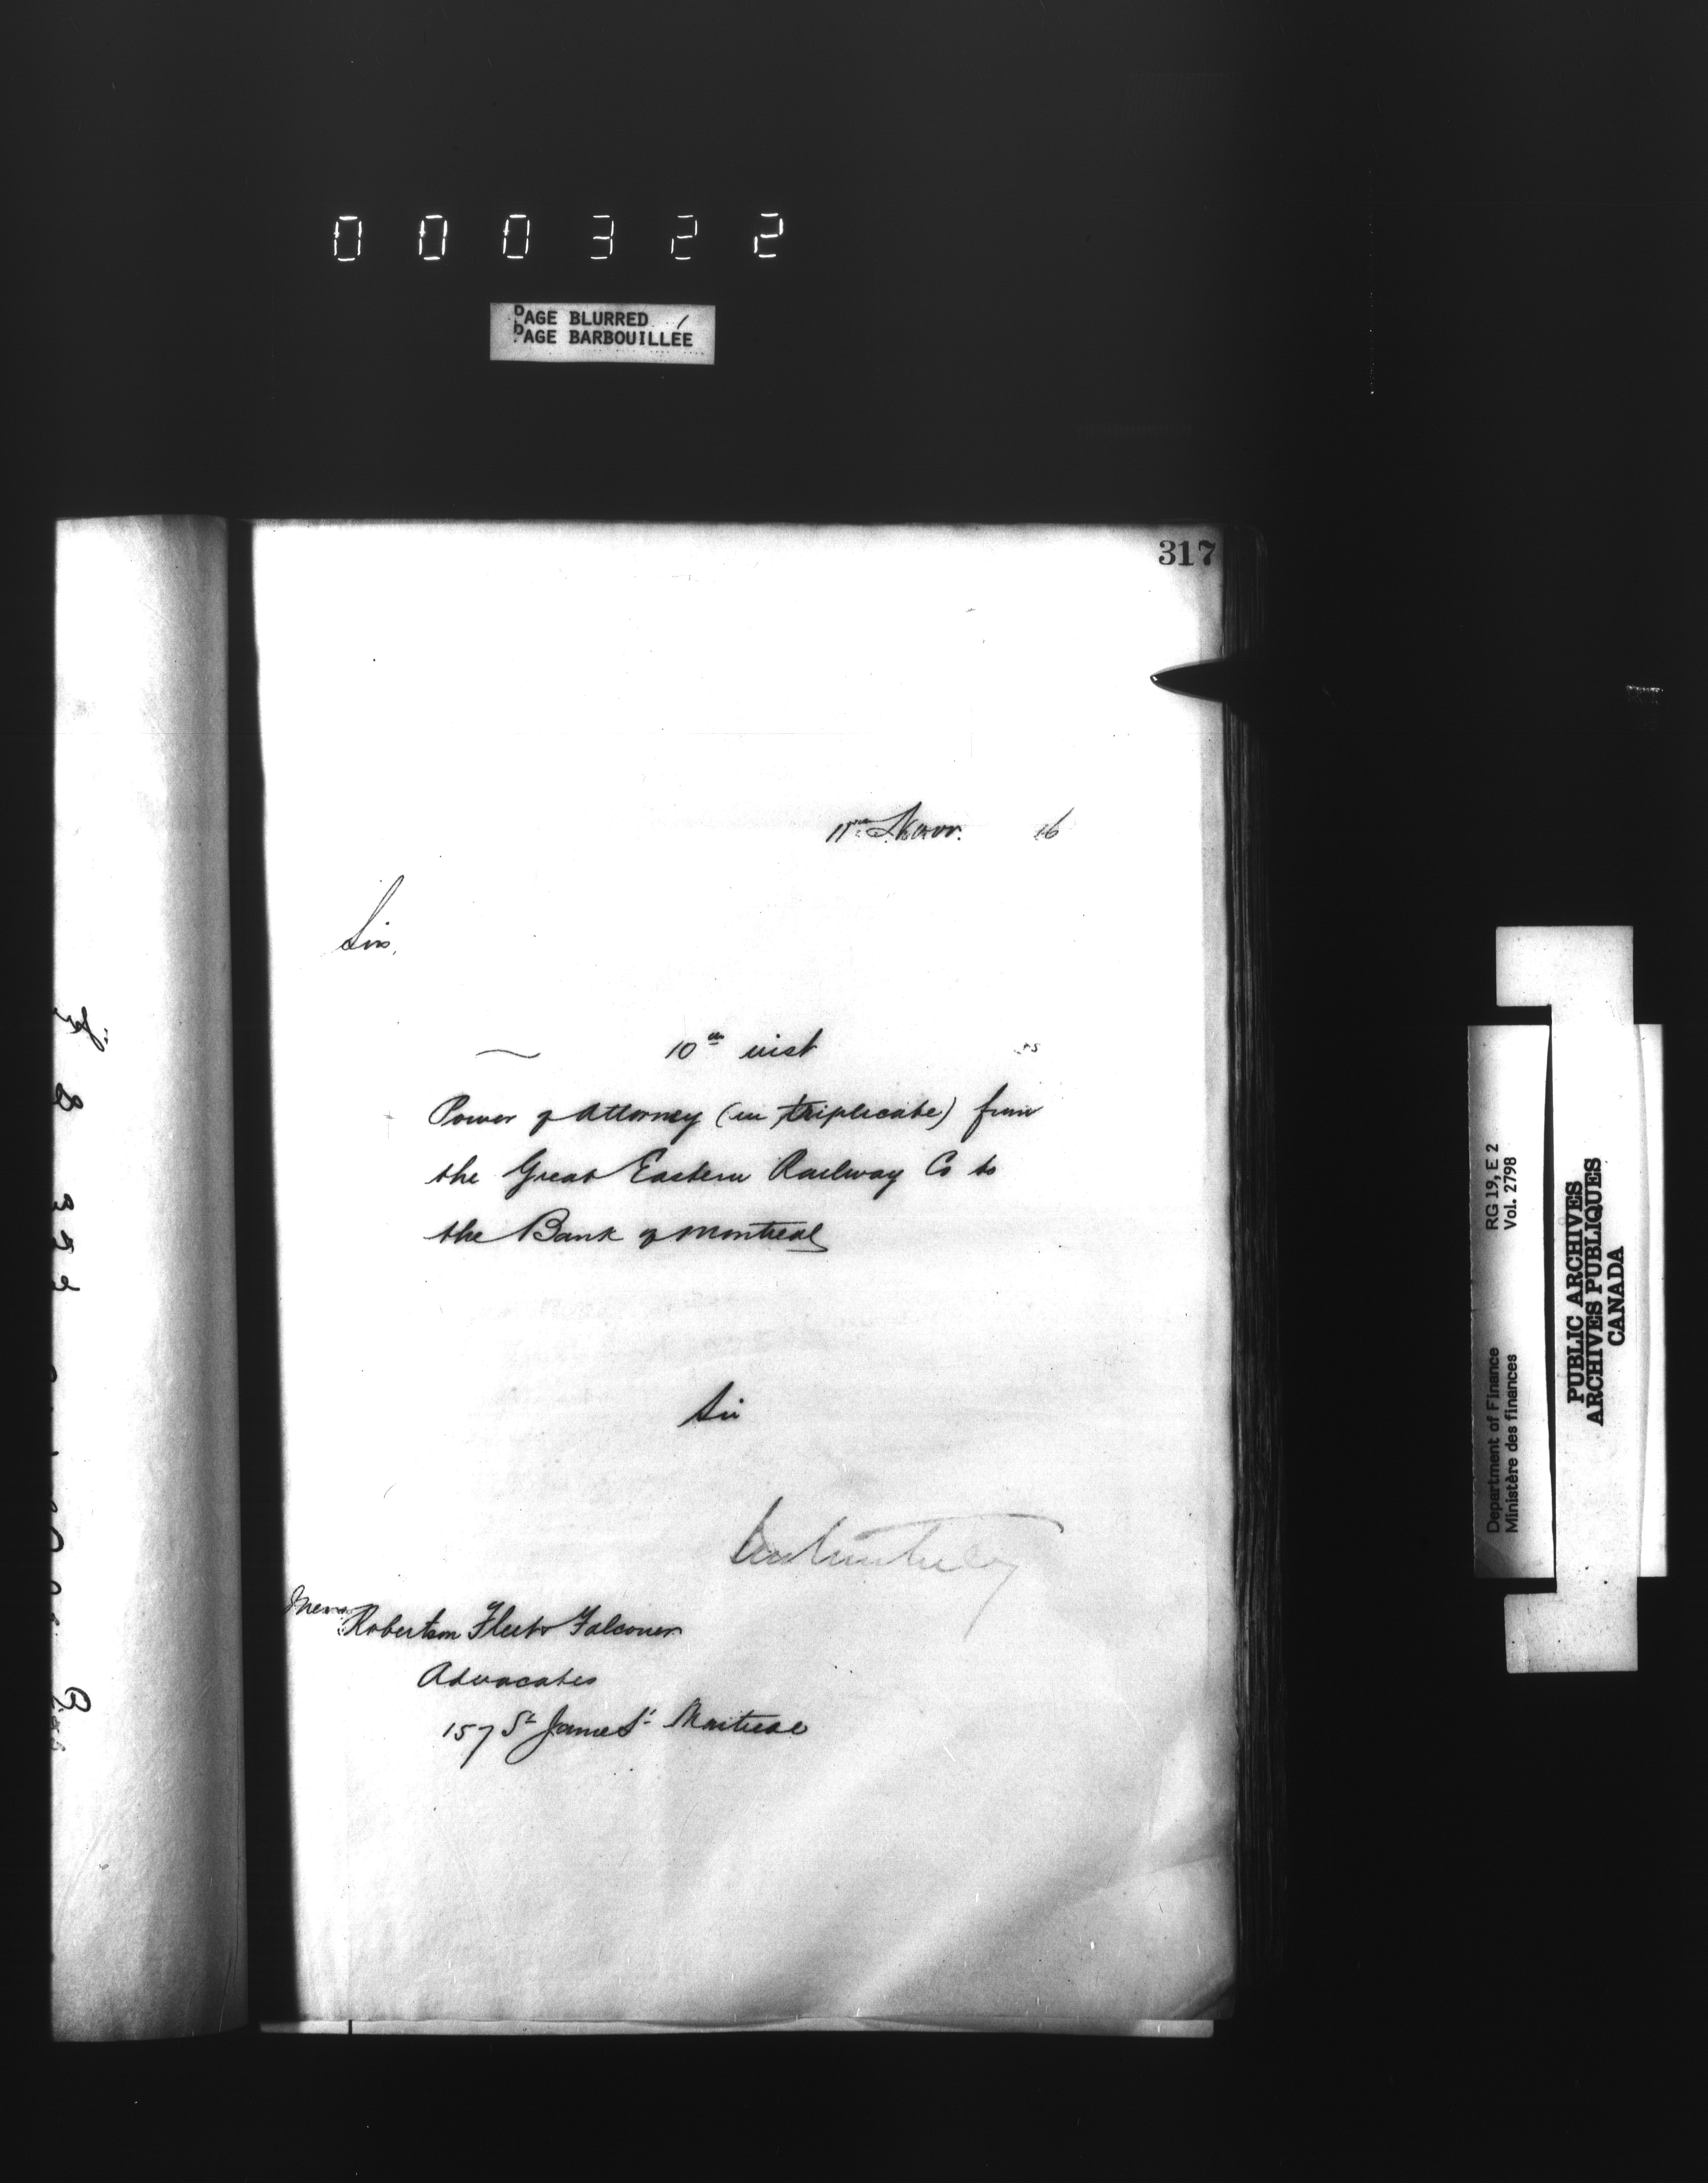 000322
PAGE BLURRED
PAGE BARBOUILLÉE
317
11th Nov.
Sir,
10th inst
Power of Attorney (in triplicate) from
the Great Eastern Railway Co to
the Bank of Montreal
Sir
Messrs Robertson Fleet & Falconer
Advocates
157 St James St Montreal
Department of Finance RG 19, E 2
Ministère des finances Vol. 2798
PUBLIC ARCHIVES
ARCHIVES PUBLIQUES
CANADA